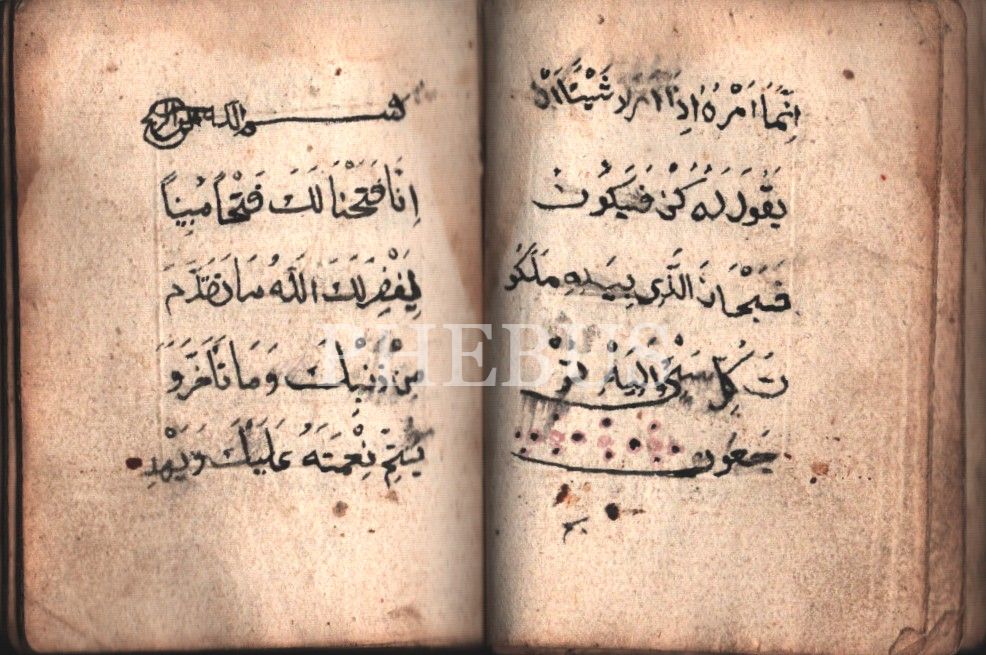 اِنَّمَا اَمْرُهُ اِذَا اَرَادَ شَيْئًا اَنْ
يَقُولَ لَهُ كُنْ فَيَكُونُ
فَسُبْحَانَ الَّذِي بِيَدِهِ مَلَكُو
تُ كُلِّ شَيْءٍ وَاِلَيْهِ تُرْ
جَعُونَ
بسم الله الرحمن الرحيم
اِنَّا فَتَحْنَا لَكَ فَتْحًا مُبِينًا
لِيَغْفِرَ لَكَ اللَّهُ مَا تَقَدَّمَ
مِنْ ذَنْبِكَ وَمَا تَأَخَّرَ وَ
يُتِمَّ نِعْمَتَهُ عَلَيْكَ وَيَهْدِ
PHEBUS